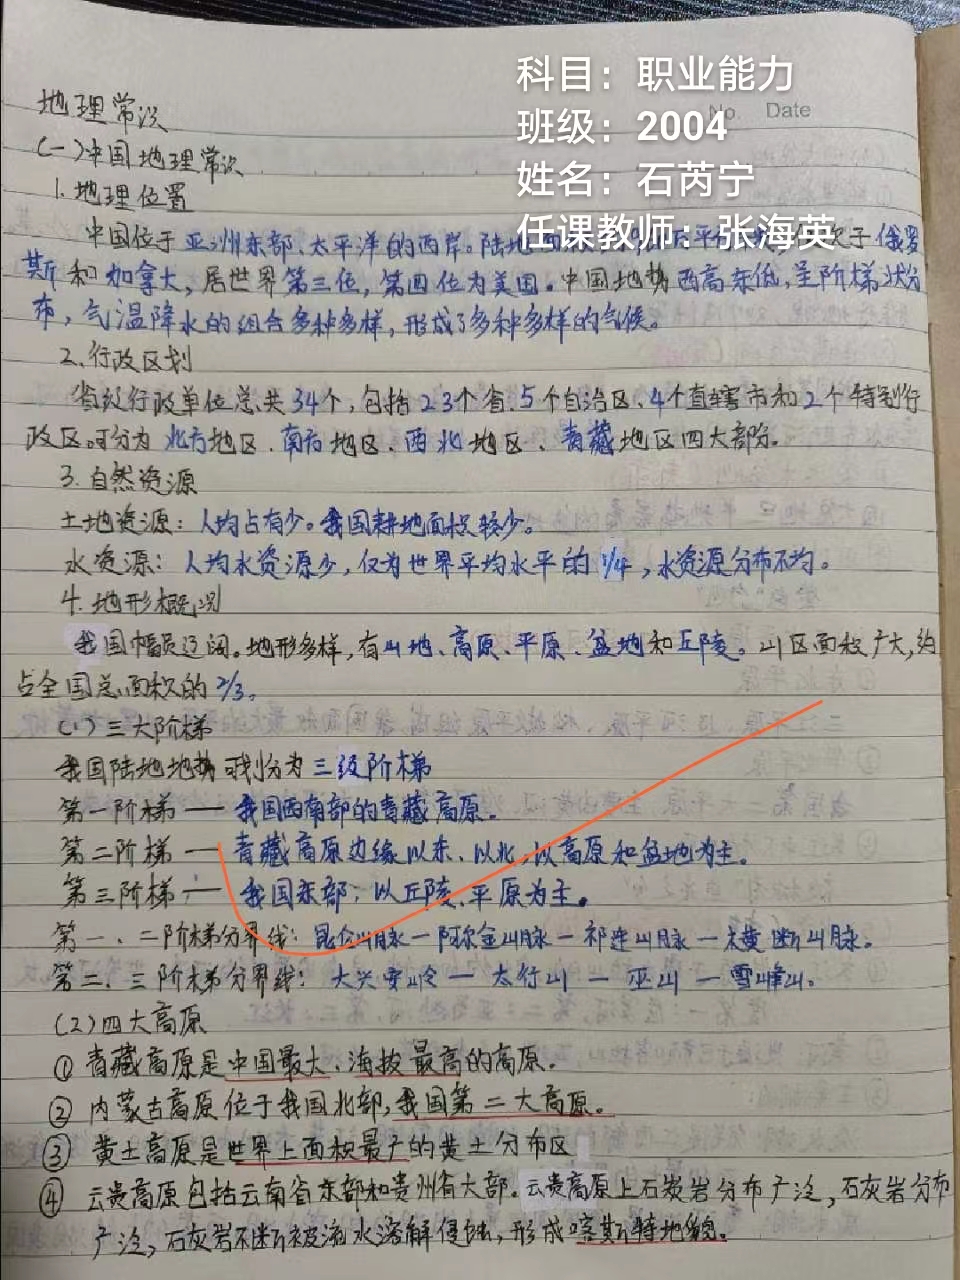 科目：职业能力
No. Date
班级：2004
姓名：石芮宁
任课教师：张海英
地理常识
(一)中国地理常识
1.地理位置
中国位于亚洲东部、太平洋的西岸。陆地 次于俄罗
斯和加拿大，居世界第三位，第四位为美国。中国地势西高东低，呈阶梯状分
布，气温降水的组合多种多样，形成了多种多样的气候。
2.行政区划
省级行政单位总共34个，包括23个省、5个自治区、4个直辖市和2个特别行
政区。可分为北方地区、南方地区、西北地区、青藏地区四大部分。
3.自然资源
土地资源：人均占有少。我国耕地面积较少。
水资源：人均水资源少，仅为世界平均水平的1/4，水资源分布不均。
4.地形概况
我国幅员辽阔。地形多样，有山地、高原、平原、盆地和丘陵。山区面积广大，约
占全国总面积的2/3。
(1)三大阶梯
我国陆地地势可划分为三级阶梯
第一阶梯——我国西南部的青藏高原。
第二阶梯——青藏高原边缘以东、以北，以高原和盆地为主。
第三阶梯——我国东部；以丘陵、平原为主。
第一、二阶梯分界线：昆仑山脉－阿尔金山脉－祁连山脉－横断山脉。
第二、三阶梯分界线：大兴安岭－太行山－巫山－雪峰山。
(2)四大高原
①青藏高原是中国最大、海拔最高的高原。
②内蒙古高原位于我国北部，我国第二大高原。
③黄土高原是世界上面积最广的黄土分布区
④云贵高原包括云南省东部和贵州省大部。云贵高原上石炭岩分布广泛，石灰岩分布
广泛，石灰岩不断被流水溶解侵蚀，形成喀斯特地貌。